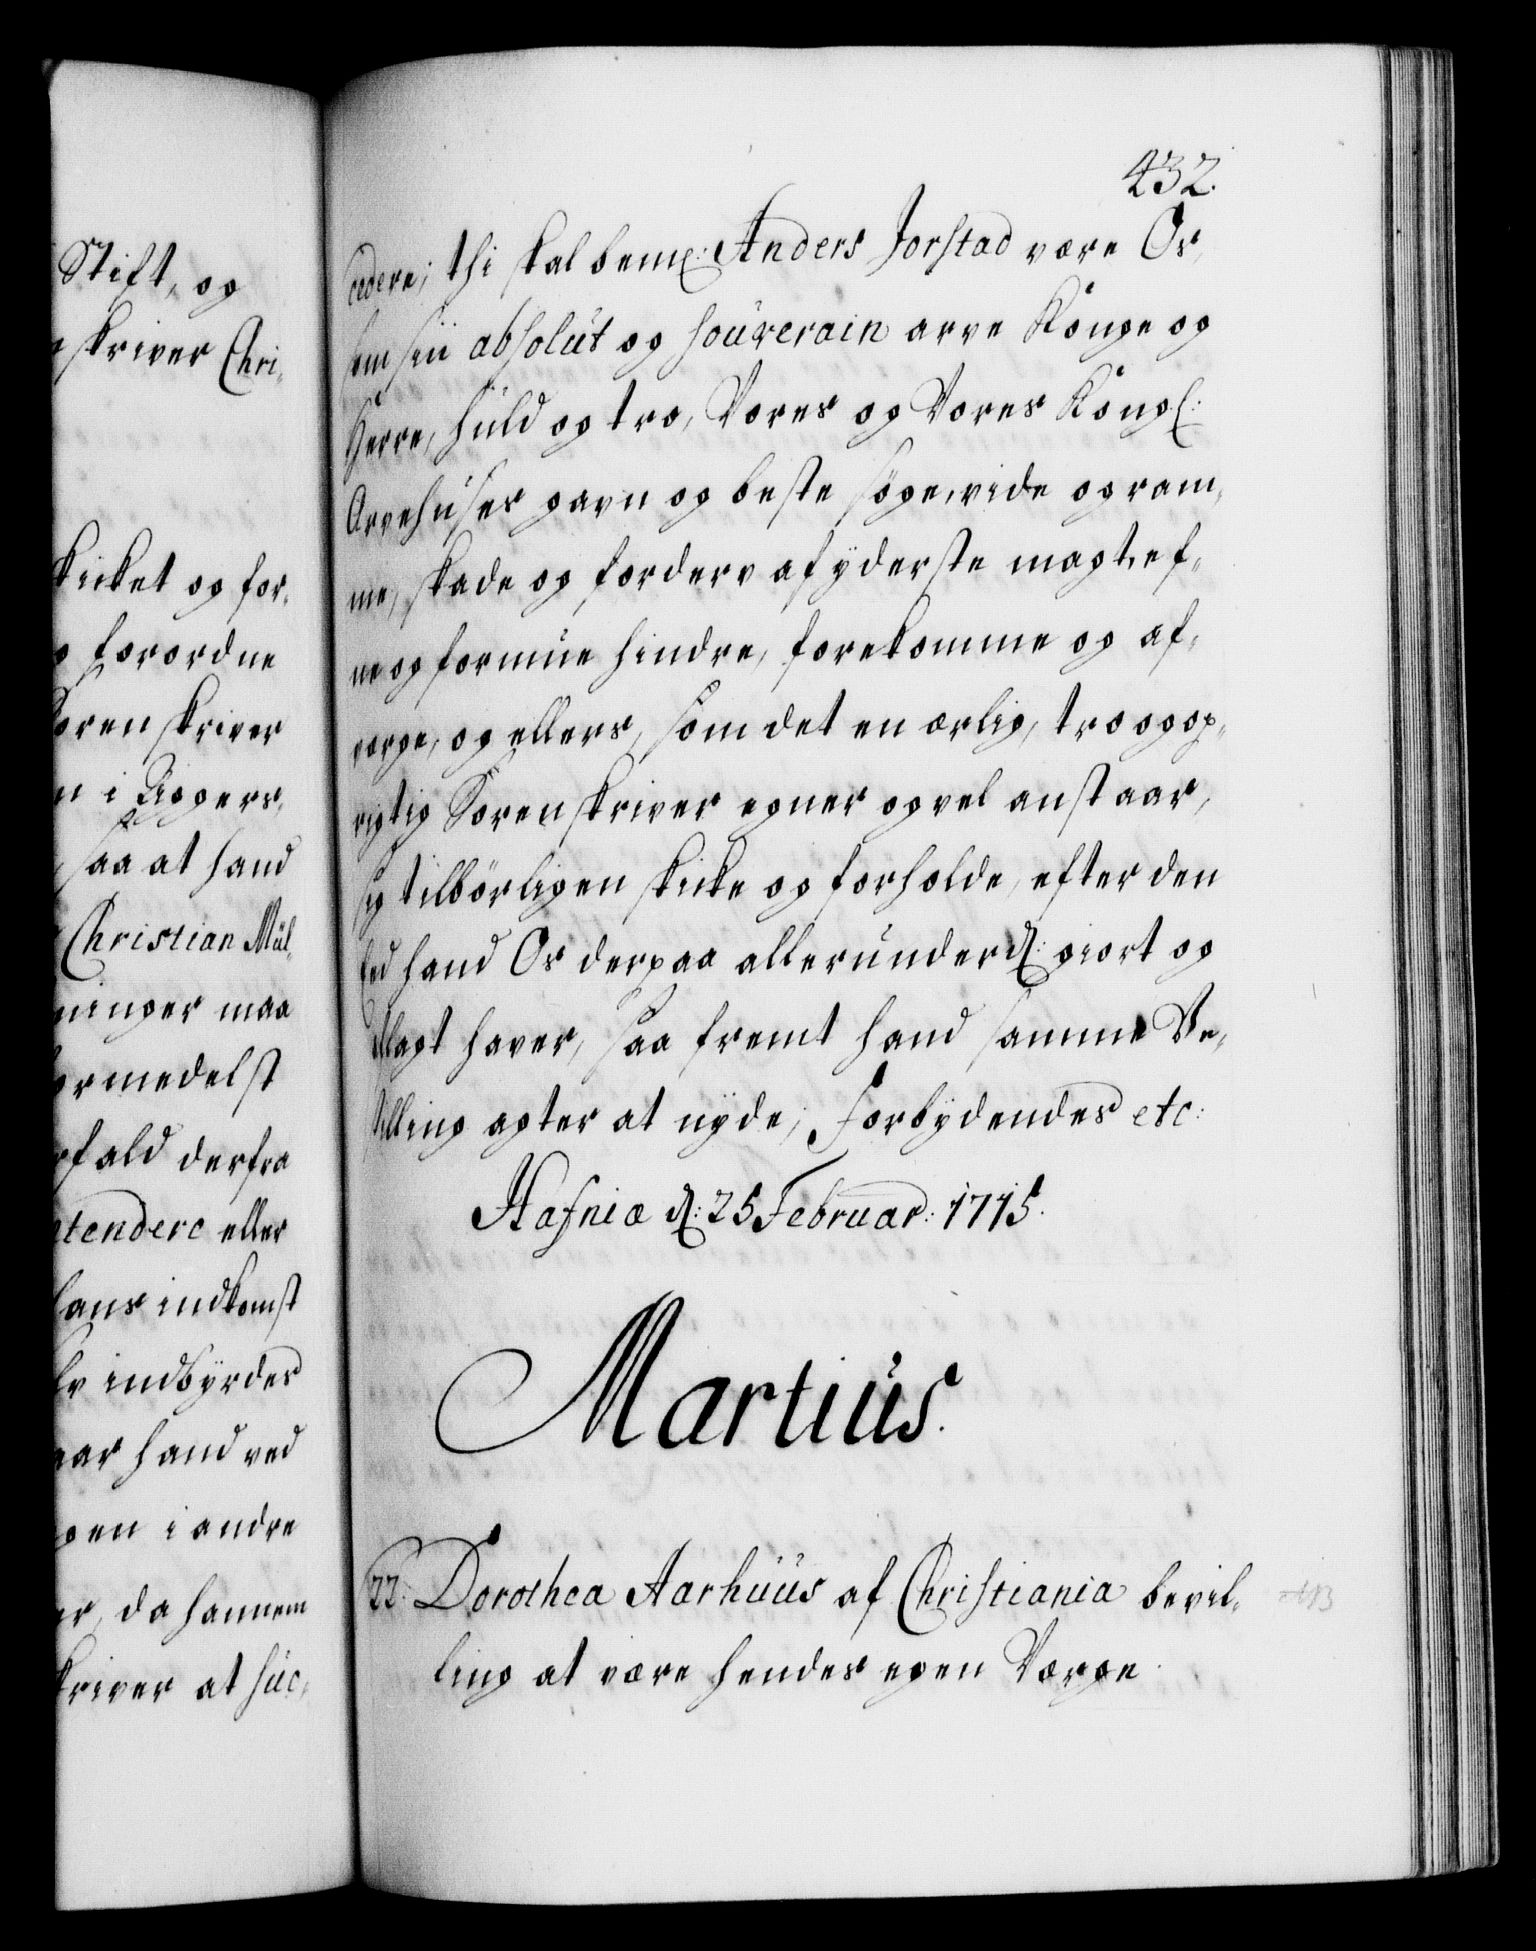 Stift, og
skriver Chri-
skicket og for-
forordne
Soren skriver
i Agers-
saa at hand
Christian Mül-
ninger maa
formedelst
fald derfra
eller
hans indkomst
indbÿrdes
hand ved
i andre
da hannem
skriver at suc-
432.
cedere; thi skal bemt: Anders Jorstad være Os,
som sin absolut og souverain arve Konge og
Herre, huld og tro, Vores og Vores Kongl:
Arvehuses gavn og beste søge, vide og ram-
me, skade og forderv af ÿderste magt, ef-
ne og formue hindre, forekomme og af-
verge, og ellers, som det en ærlig, tro og op-
rigtig Sorenskriver egner og vel anstaar,
sig tilbörligen skicke og forholde, efter den
Eed hand Os derpaa allerunderd: giort og
aflagt haver, saa fremt hand samme Be-
stilling agter at nÿde; Forbÿdendes etc:
Hafniæ d: 25 Februar: 1715.
Martius.
22: Dorothea Aarhuus af Christiania bevil-
ling at være hendes egen Værge.